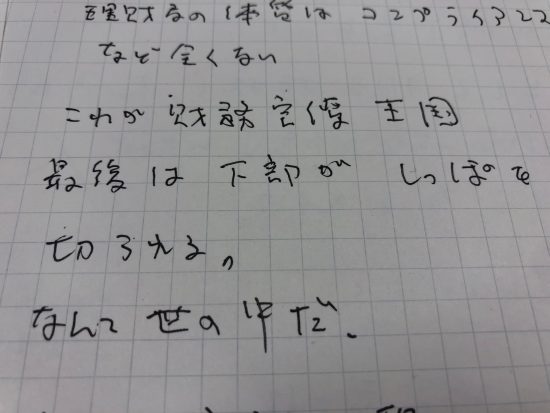 理財局の体質は コンプライアンス
など全くない
これが 財務官僚 王国
最後は 下部が しっぽを
切られる。
なんて世の中だ。